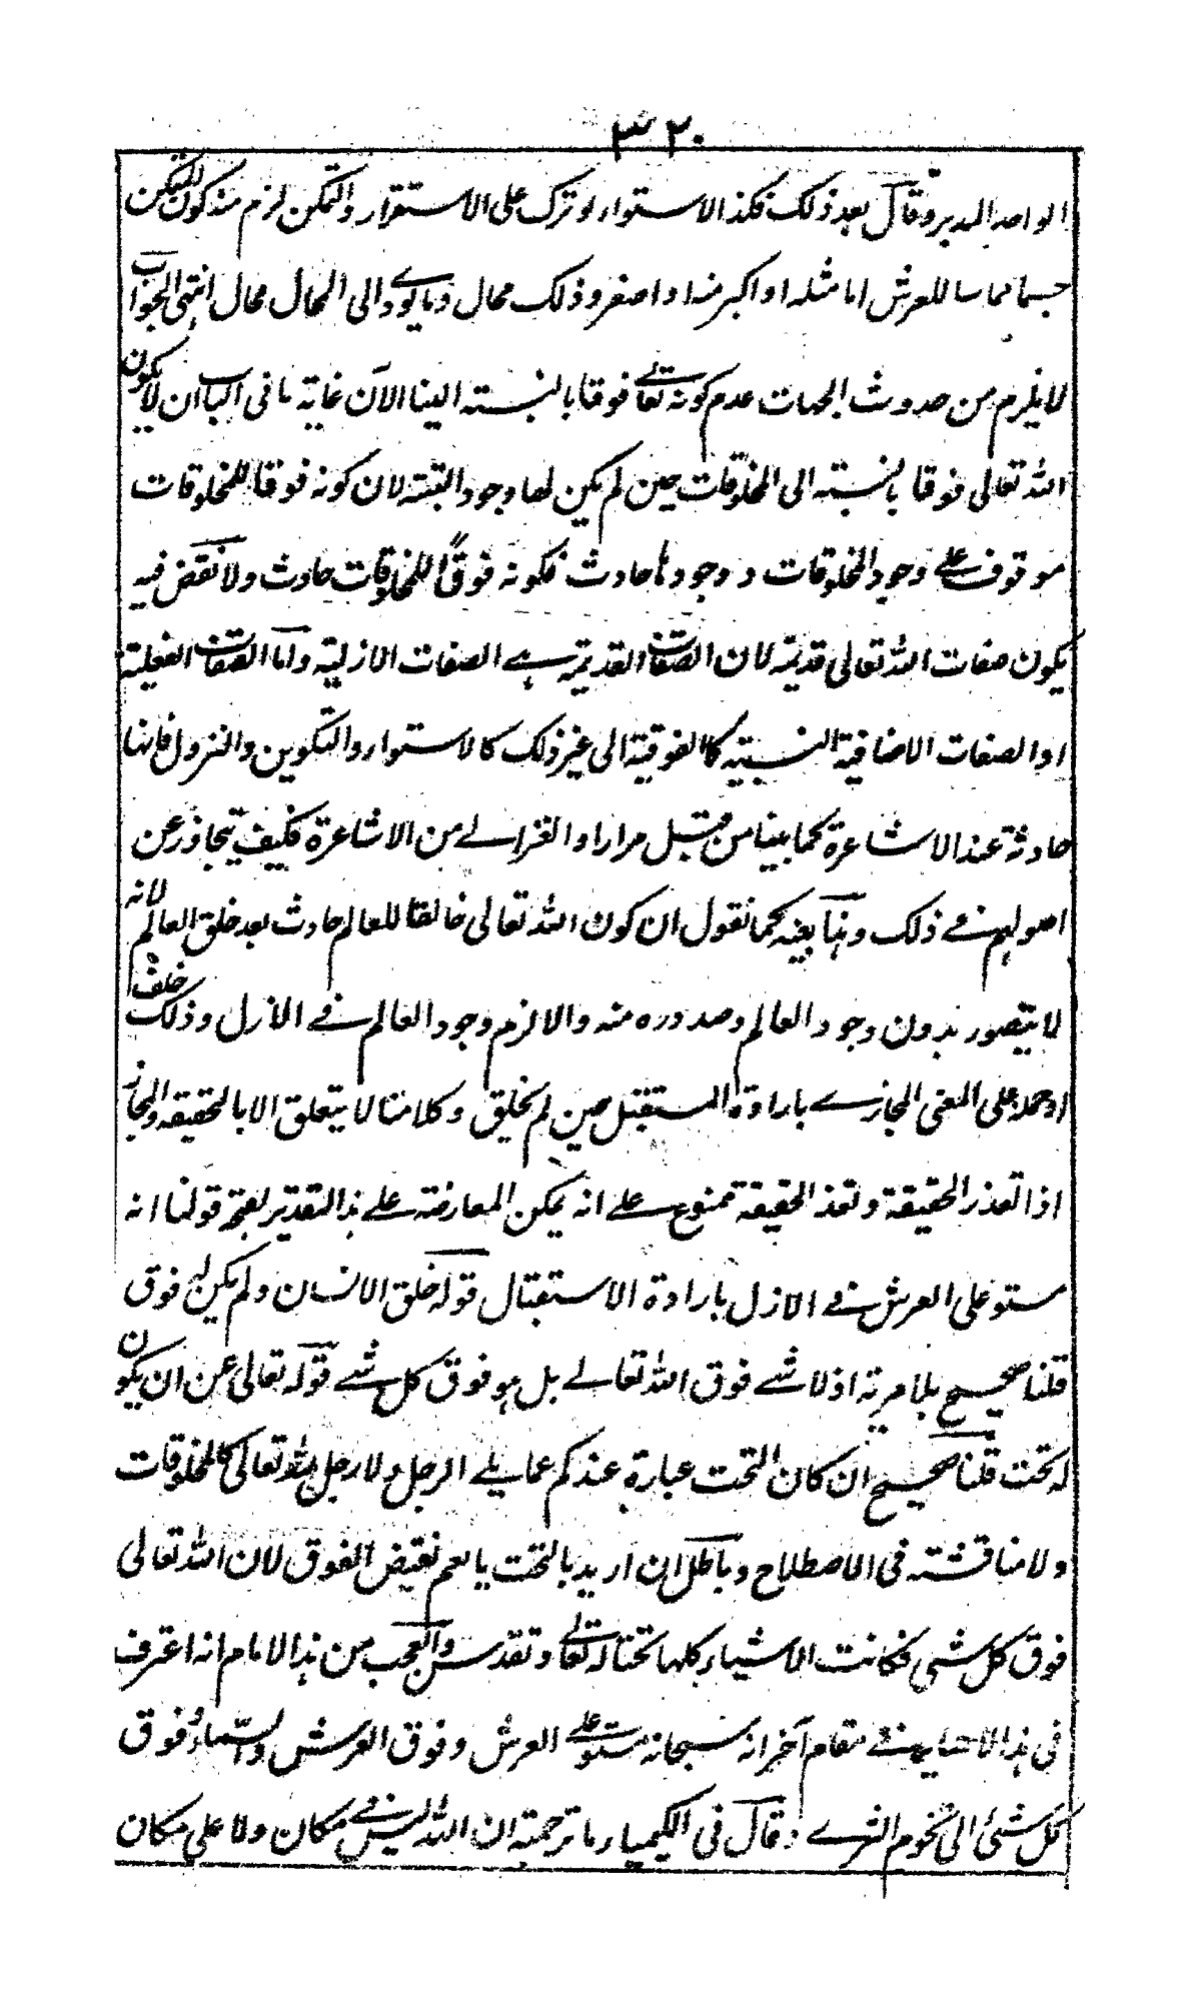 ٣٢٠
الواحد المدبر وقال بعد ذلك فكذا الاستواء لو ترك على الاستقرار والتمكن لزم منه كون المتمكن
جسما مماسا للعرش اما مثله او اكبر منه او اصغر وذلك محال وما يودے الى المحال محال انتهى الجواب
لا يلزم من حدوث الجهات عدم كونه تعالے فوقا بالنسبته الينا الآن غاية ما فى الباب ان لا يكون
الله تعالى فوقا بالنسبته الى المخلوقات حين لم يكن لها وجود البتة لان كونه فوقا للمخلوقات
موقوف علے وجود المخلوقات و وجودها حادث فكونه فوقًا للمخلوقات حادث ولا نقض فيه
بكون صفات الله تعالى قديمة لان الصفات القديمة هے الصفات الازلية واما الصفات الفعلية
او الصفات الاضافية النسبية كالفوقية الى غير ذلك كالاستواء والتكوين والنزول فانها
حادثة عند الاشاعرة كما بينا من قبل مرارا والغزالے من الاشاعرة فكيف يتجاوز عن
اصولهم فے ذلك وهذا بعينه كما نقول ان كون الله تعالى خالقا للعالم حادث بعد خلق العالم لانه
لا يتصور بدون وجود العالم وصدوره منه والا لزم وجود العالم فے الازل وذلك خلف
او حمله على المعنى المجازے بارادة المستقبل حين لم يخلق وكلامنا لا يتعلق الا بالحقيقة والمجاز
اذا تعذر الحقيقة وتعذر الحقيقة ممنوع علے انه يمكن المعارضة علے هذا التقدير لصحة قولنا انه
مستو على العرش فے الازل بارادة الاستقبال قوله خلق الانسان ولم يكن له فوق
قلنا صحيح بلا مرية اذ لا شے فوق الله تعالے بل هو فوق كل شے قوله تعالى عن ان يكون
له تحت قلنا صحيح ان كان التحت عبارة عندكم عما يلے الرجل ولا رجل لله تعالى كالمخلوقات
ولا مناقشته فى الاصطلاح وباطل ان اريد بالتحت ما يعم نقيض الفوق لان الله تعالى
فوق كل شى فكانت الاشياء كلها تحتا له تعالے وتقدس والعجب من هذا الامام انه اعترف
فى هذا الاحياء فے مقام آخر انه سبحانه مستو علے العرش وفوق العرش والسماء وفوق
كل شئ الى تخوم الثرے وقال فى الكيمياء ما ترجمته ان الله ليس فے مكان ولا على مكان